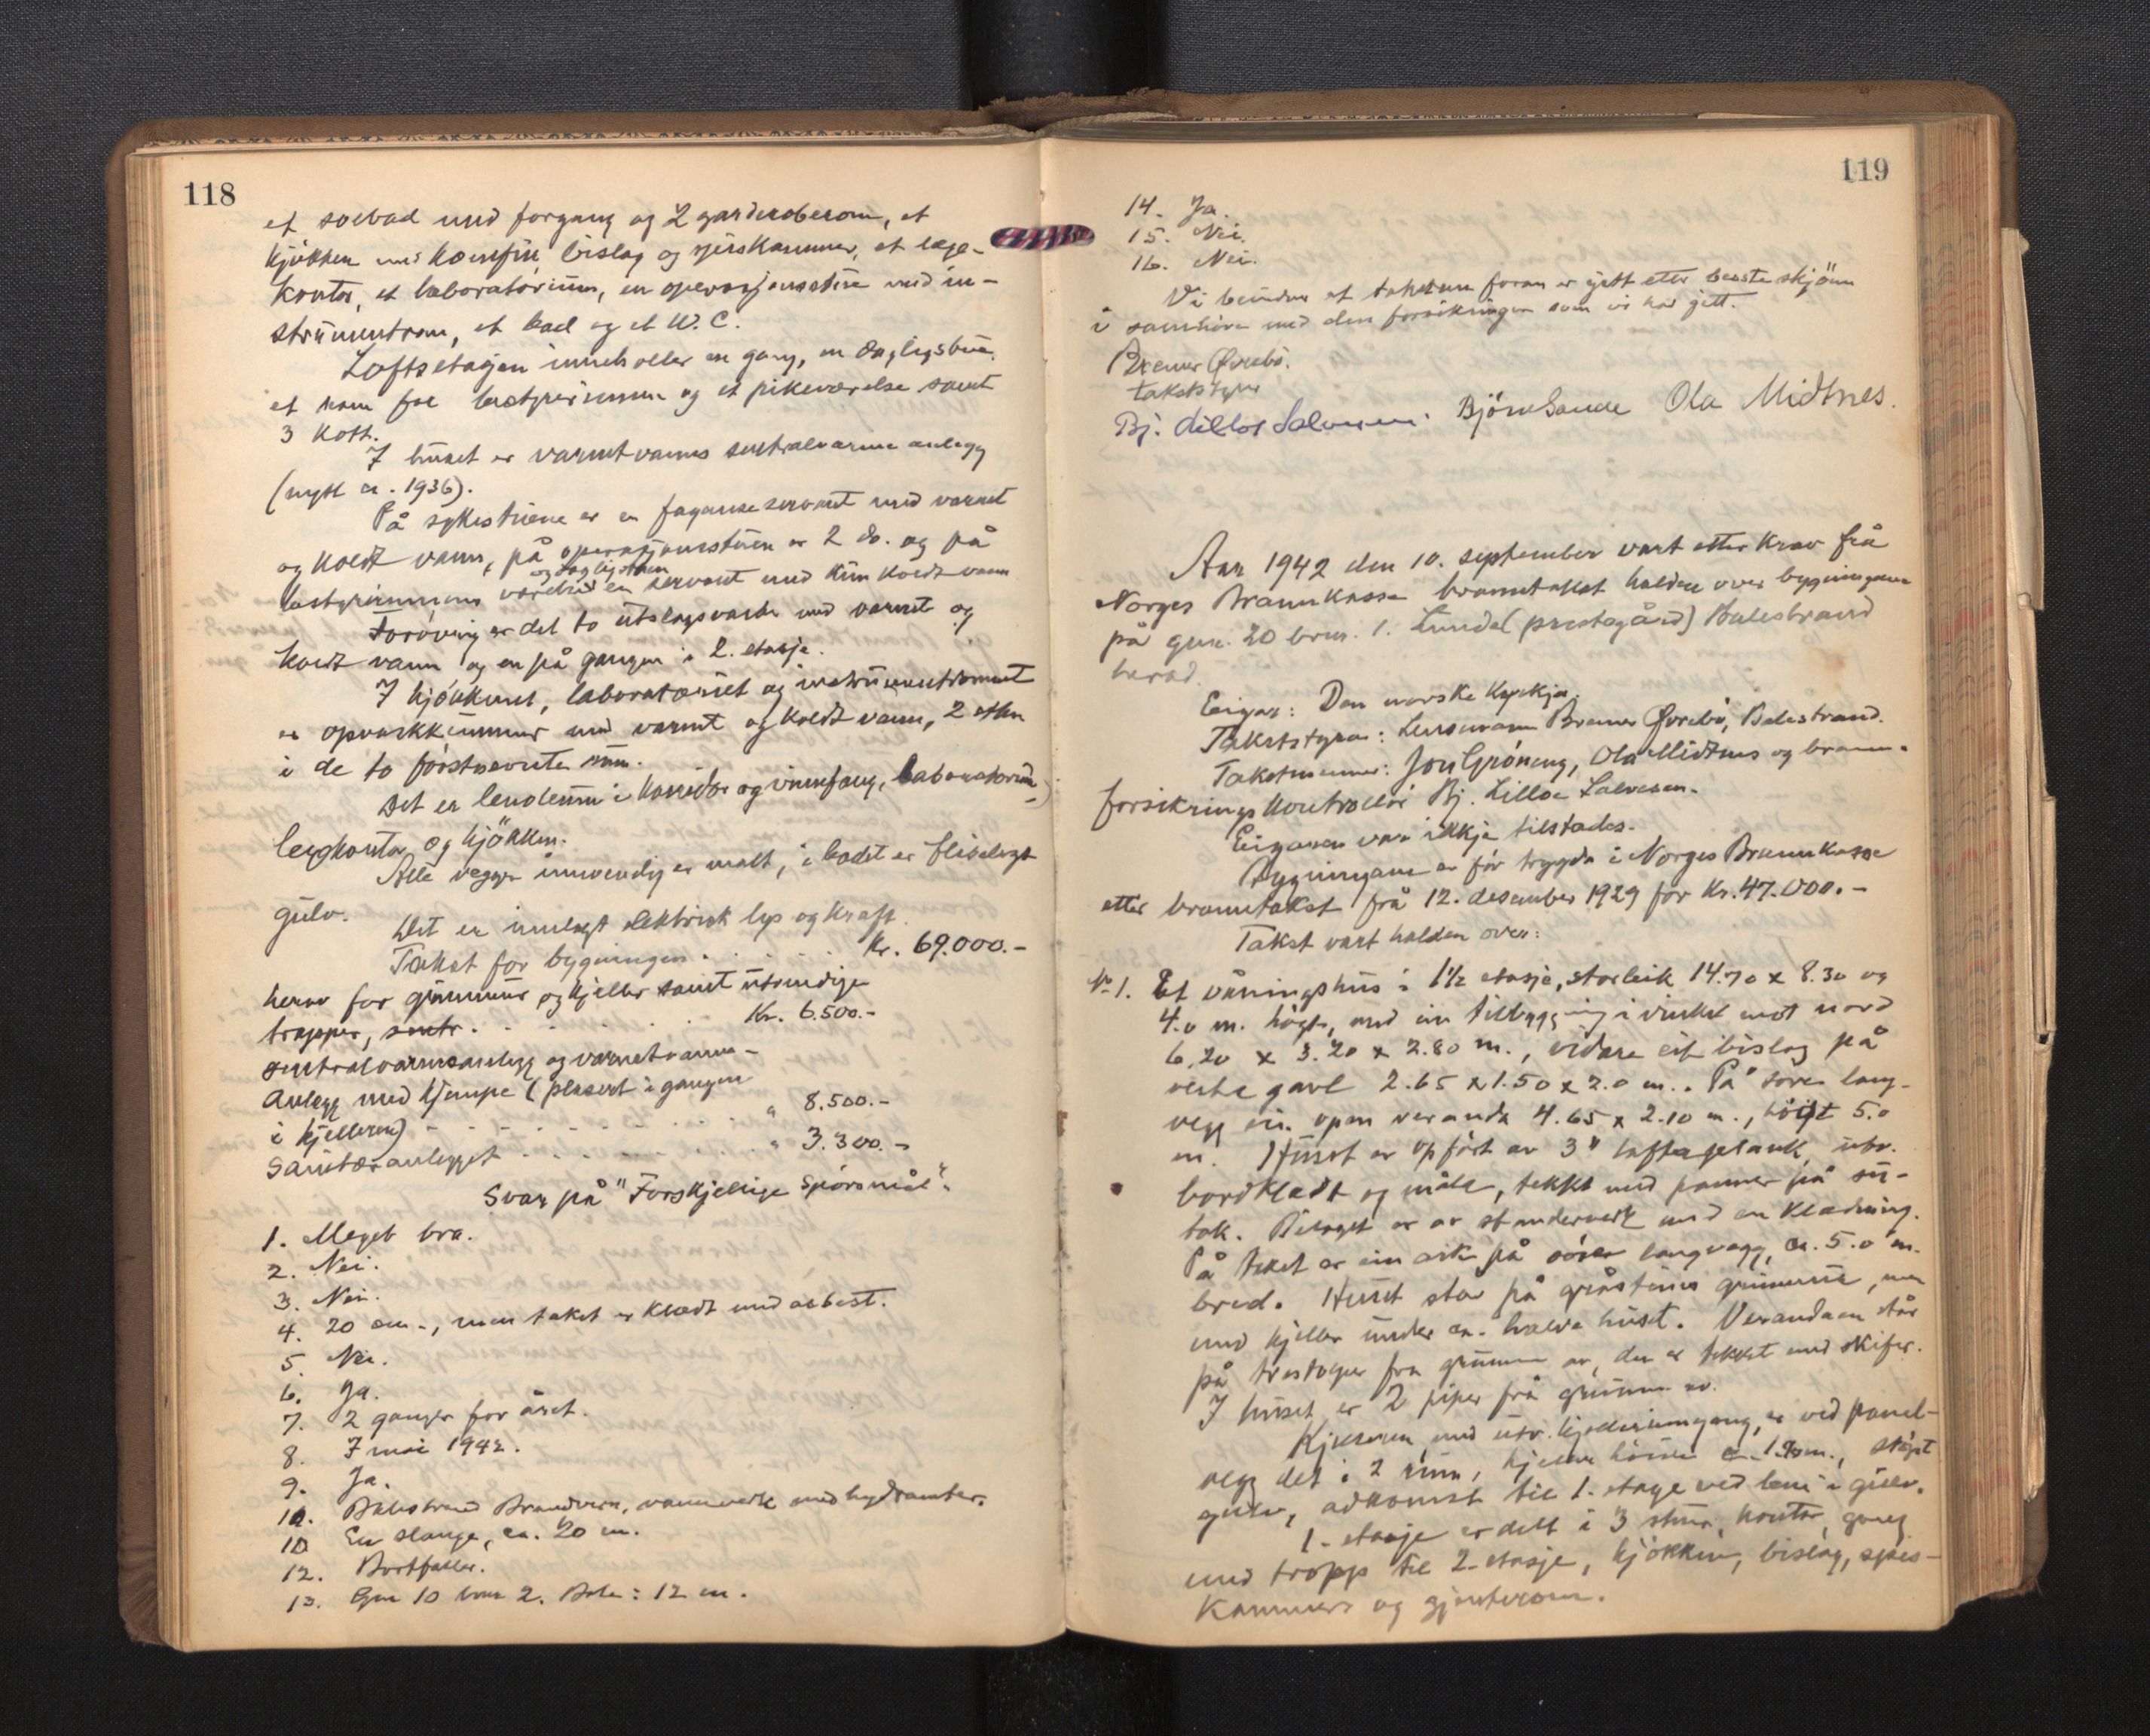 118
et solbad med forgang og 2 garderoberom, et
kjökken med komfür, bislag og spiskammer, et læge-
kontor, et laboratoriüm, en operasjonsstüe med in-
strümentrom, et bad og et W.C.
Loftsetasjen inneholder en gang, en dagligstüe,
et rom for bestyrerinnen og et pikeværelse samt
3 kott.
I hüset er varmtvanns sentralvarme anlegg
(nytt ca. 1936).
På sykestüene er en fayanse servant med varmt
og koldt vann, på operasjonsstüen er 2 do. og på
bestyrerinnens og dagligstüen værelse en servant med kün koldt vann
Forøvrig er det to ütslagsvasker med varmt og
koldt vann og en på gangen i 2. etasje.
I kjökkenet, laboratoriet og instrümentrommet
er opvaskkümmer med varmt og koldt vann, 2 stkr
i de to förstnevnte rüm.
Det er linoleüm i korridor og vinnfang, laboratoriüm,
legekontor og kjökken.
Alle vegger innvendig er malt, i badet er fliselagt
gülv.
Det er innlagt elektrisk lys og kraft.
Takst for bygningen . . . . Kr. 69.000.-
herav for grünnmür og kjeller samt ütvendige
trapper, sentr. . . . . . Kr. 6.500.-
sentralvarmeanlegg og varmtvanns-
anlegg med kjempe (plasert i gangen
i kjelleren) - - - - - - - - " 8.500.-
Sanitæranlegget - - - - - - " 3.300.-
Svar på "Forskjellige Spörsmål".
1. Meget bra.
2. Nei.
3. Nei.
4. 20 cm., men taket er kledt med asbest.
5. Nei.
6. Ja.
7. 2 ganger for året.
8. 7 mai 1942.
9. Ja.
10. Balestrand Brandvern, vannverk med hydranter.
10 En slange, ca. 20 m.
12. Bortfaller.
13. Gnr 10 bnr 2. Bale: 12 m.
119
14. Ja.
15. Nei.
16. Nei.
Vi vitner at taksten foran er gjett etter beste skjönn
i samhøve med den forsikringen som vi har gjett.
Bremer Øvrebö.
takststyrar
Bj. Lilloe Salvesen. Björn Sande Ola Midtnes.
Aar 1942 den 10. september vart etter krav frå
Norges Brannkasse branntakst halden over bygningane
på gnr. 20 bnr. 1. Lunde (prestegård) Balestrand
herad.
Eigar: Den norske kyrkja.
Takststyrar: Lensmann Bremer Øvrebö, Balestrand.
Takstmenner: Jon Gröneng, Ola Midtnes og brann-
forsikringskontrollör Bj. Lilloe Salvesen.
Eigaren var ikkje tilstades.
Bygningane er för trygda i Norges Brannkasse
etter branntakst frå 12. desember 1929 for Kr. 47.000.-
Takst vart halden over:
No 1. Et våningshüs i 1½ etasje, storleik 14.70 x 8.30 og
4.0 m. högt, med ein tilbygging i vinkel mot nord
6.20 x 3.20 x 2.80 m., vidare eit bislag på
vestre gavl 2.65 x 1.50 x 2.0 m. På søre lang-
vegg ein open veranda 4.65 x 2.10 m., högt 5.0
m. Hüset er opfört av 3" lafteplank, ütv.
bordkledt og målt, tekkt med panner på sü-
tak. Bislaget er av stenderverk med en klædning.
På taket er ein ark på sörer langvegg, ca. 5.0 m.
bred. Hüset står på gråsteins grünnmür, men
med kjeller ünder ca. halve hüset. Verandaen står
på trestolper fra grünnen av, den er tekket med skifer.
I hüset er 2 piper frå grünnen av.
Kjelleren med ütv. kjellerinngang, er ved panel-
vegg delt i 2 rüm, kjellerhöide ca. 1.90 m., støpt
gülv, adkomst til 1. etage ved lem i gülv.
1. etasje er delt i 3 stüer, kontor, gang
med tropp til 2. etasje, kjökken, bislag, spis-
kammer og gjesterom.